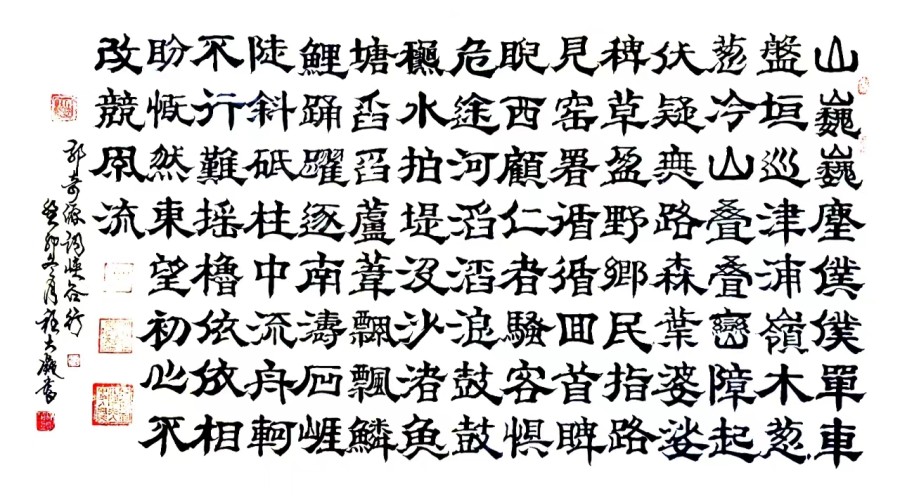 山巍巍塵僕僕單車
盤垣巡津浦嶺木葱
葱冷山叠叠巒障起
伏疑無路森葉婆娑
稗草盈野鄉民指路
見窑署遁循回首睥
睨西顧仁者騷客惧
危途河滔滔浪鼓鼓
水拍堤没沙渚魚
塘舀舀蘆葦飄飄鱗
鯉踊躍逐南濤崕
陡斜砥柱中流舟軻
不行難摇櫓依依相
盼慨然東望初心不
改競風流
奇源词峡谷行
癸卯冬月程大書